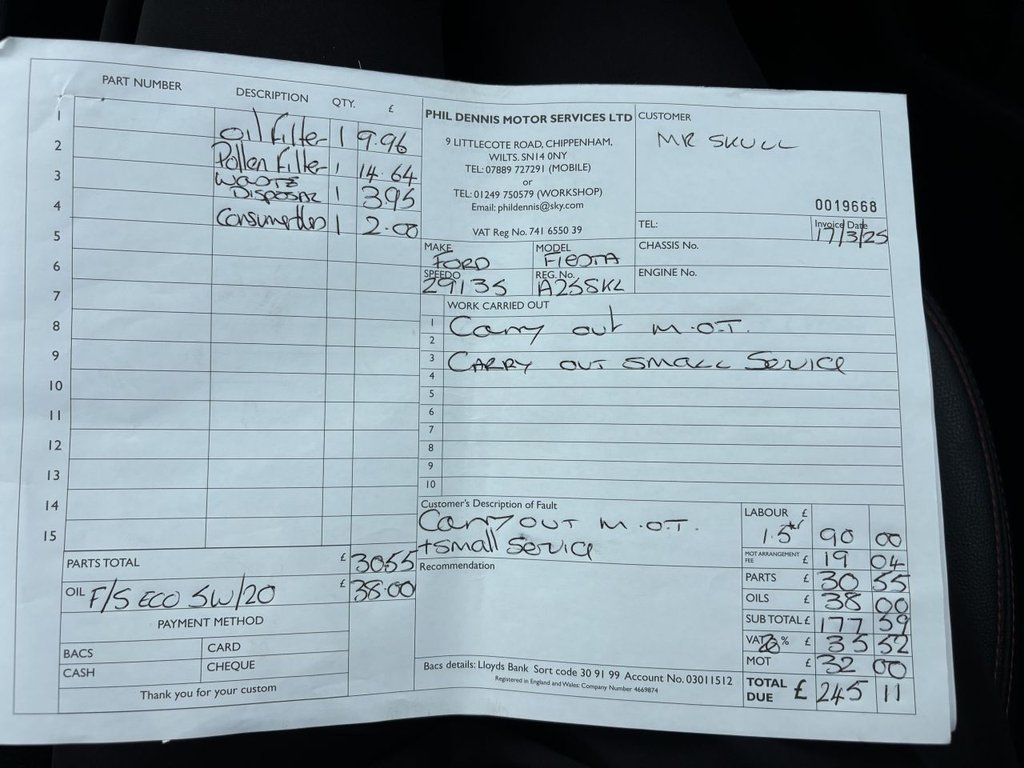 PART NUMBER DESCRIPTION QTY. £
1 Oil Filter 1 9.96
2 Pollen Filter 1 14.64
3 Waste Disposal 1 3 95
4 Consumables 1 2.00
5
6
7
8
9
10
11
12
13
14
15
PARTS TOTAL £ 30 55
OIL F/S ECO 5W/20 £ 38.00
PAYMENT METHOD
BACS CARD
CASH CHEQUE
Thank you for your custom
PHIL DENNIS MOTOR SERVICES LTD
9 LITTLECOTE ROAD, CHIPPENHAM,
WILTS. SN14 0NY
TEL: 07889 727291 (MOBILE)
or
TEL: 01249 750579 (WORKSHOP)
Email: phildennis@sky.com
VAT Reg No. 741 6550 39
CUSTOMER
MR SKULL
0019668
TEL:
Invoice Date
17/3/25
MAKE FORD
MODEL FIESTA
CHASSIS No.
SPEEDO 29135
REG. No. A25SKL
ENGINE No.
WORK CARRIED OUT
1 Carry out M.O.T.
2
3 CARRY OUT SMALL Service
4
5
6
7
8
9
10
Customer's Description of Fault
Carry OUT M.O.T.
+ small Service
Recommendation
Bacs details: Lloyds Bank Sort code 30 91 99 Account No. 03011512
Registered in England and Wales: Company Number 4669874
LABOUR £ 1.5 hr 90 00
MOT ARRANGEMENT FEE £ 19 04
PARTS £ 30 55
OILS £ 38 00
SUB TOTAL £ 177 59
VAT 20 % £ 35 52
MOT £ 32 00
TOTAL DUE £ 245 11